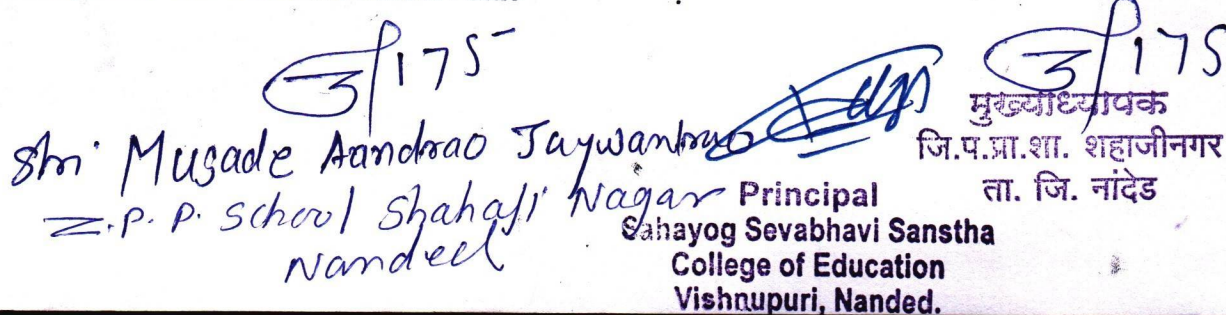 Shri Mugade Aandrao Jaywantrao
Z.P.P. School Shahaji Nagar
Nanded
Principal
Sahayog Sevabhavi Sanstha
College of Education
Vishnupuri, Nanded.
मुख्याध्यापक
जि.प.प्रा.शा. शहाजीनगर
ता. जि. नांदेड